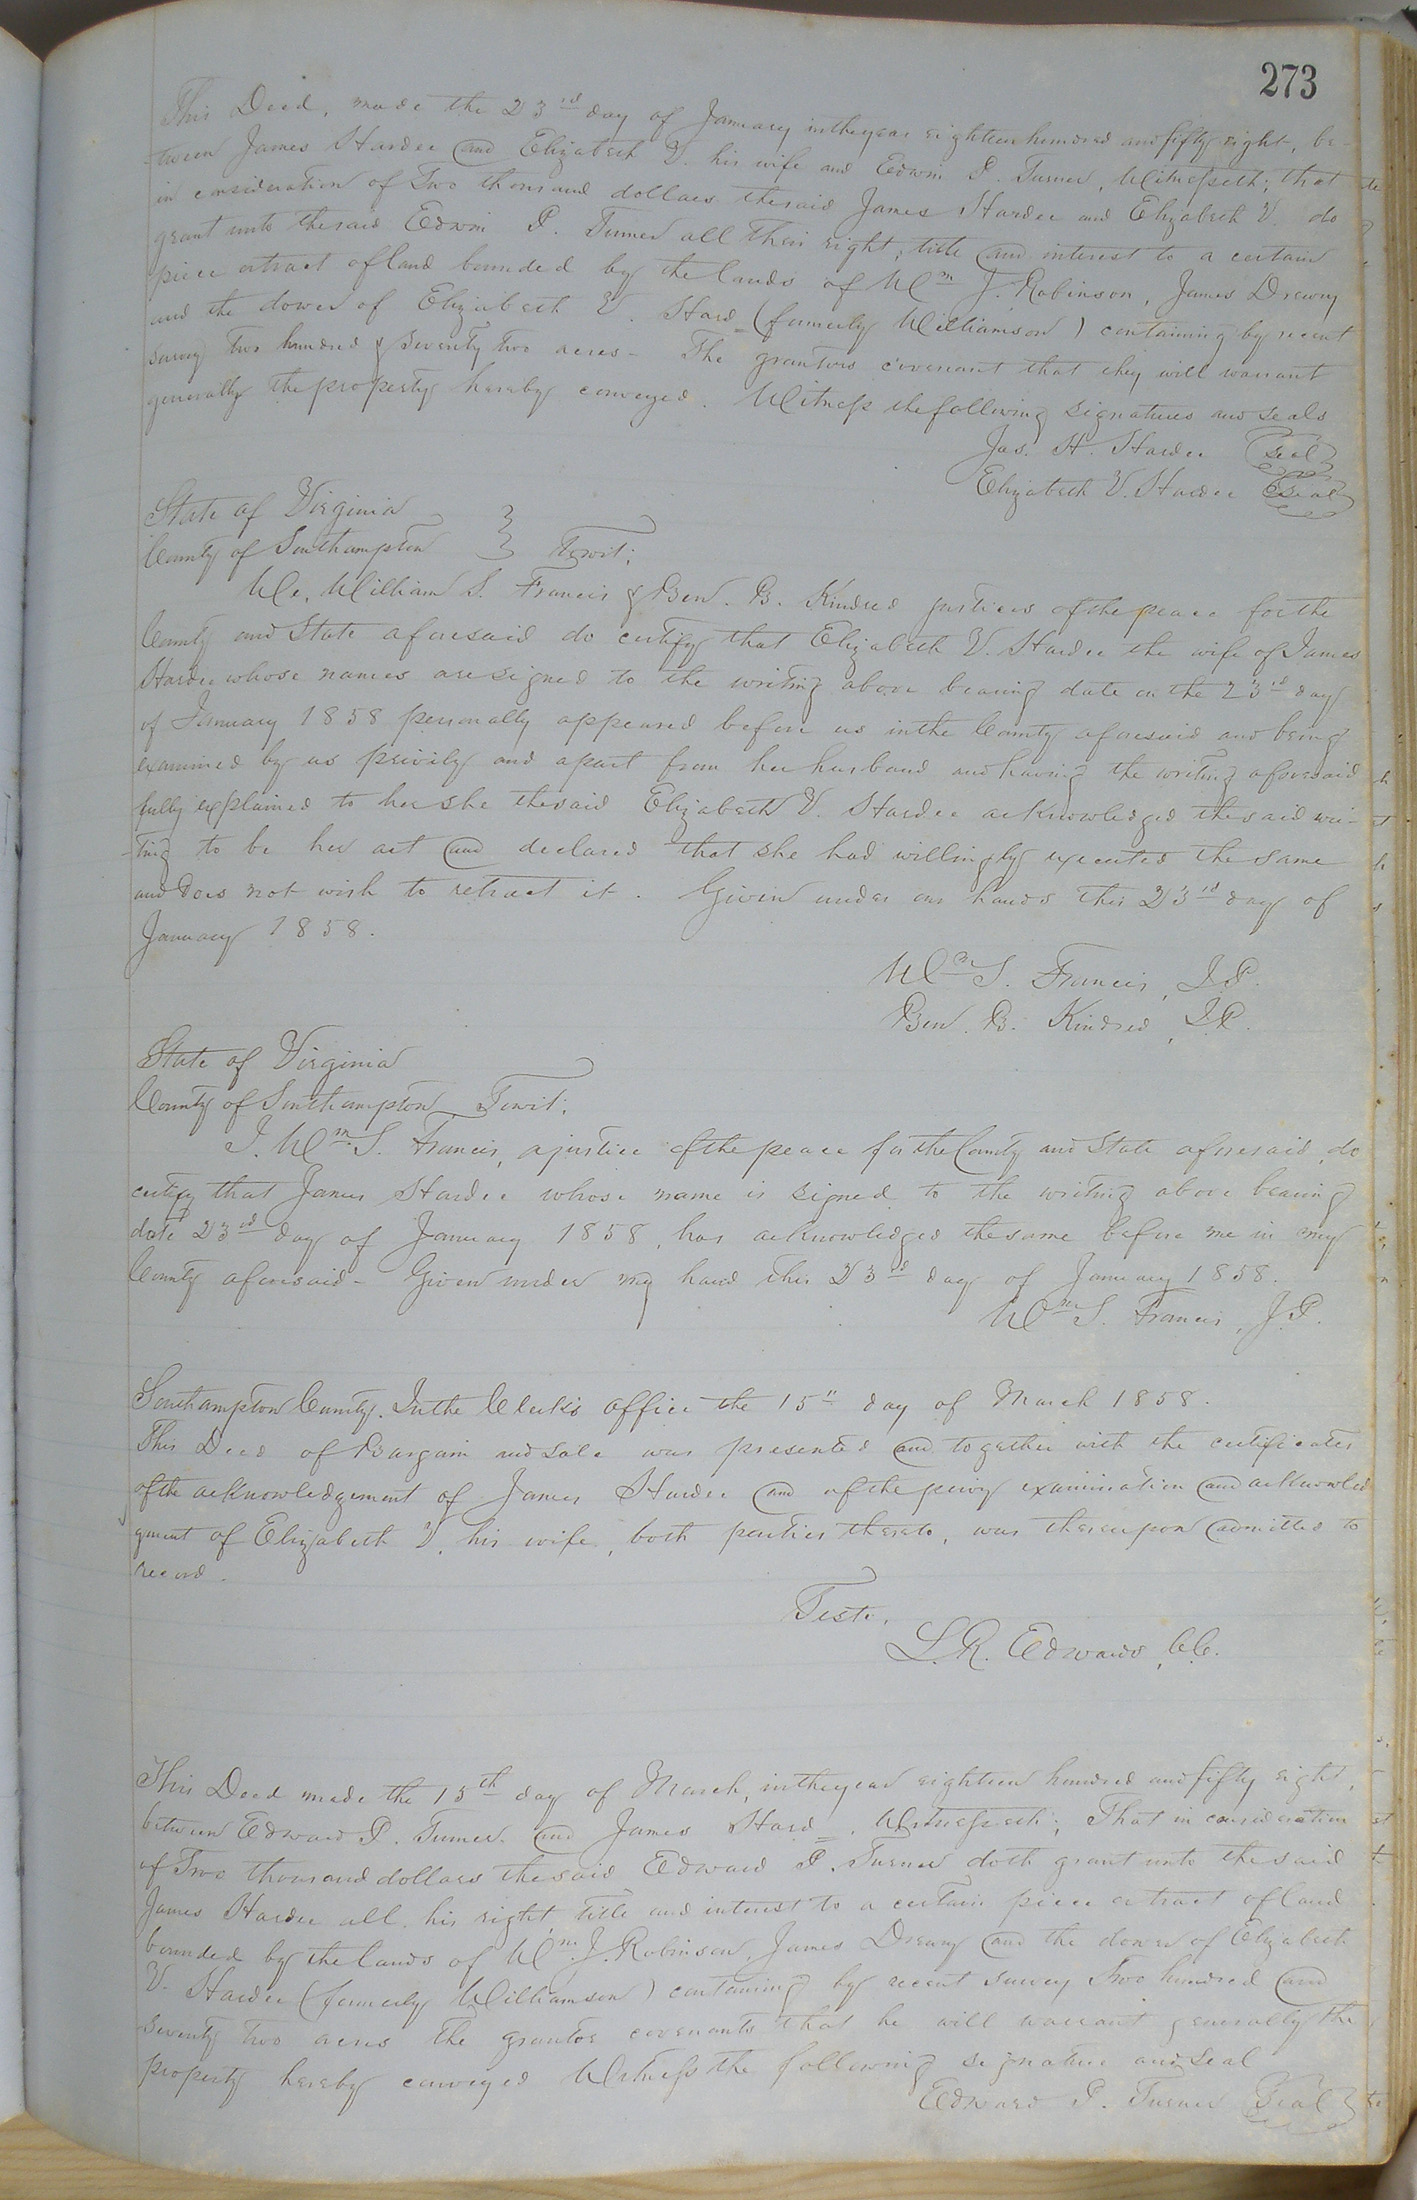 273
This Deed, made the 23rd day of January in the year eighteen hundred and fifty eight, be-
-tween James Hardee and Elizabeth V. his wife and Edwin P. Turner, Witnesseth; that
in consideration of Two thousand dollars the said James Hardee and Elizabeth V. do
grant unto the said Edwin P. Turner all their right, title and interest to a certain
piece or tract of land bounded by the lands of Wm J. Robinson, James Drewry
and the dower of Elizabeth V. Hard= (formerly Williamson) containing by recent
survey two hundred & seventy two acres - The grantors covenant that they will warrant
generally the property hereby conveyed. Witness the following signatures and seals
Jas. H. Hardee (seal)
Elizabeth V. Hardee (seal)
State of Virginia
County of Southampton } Towit:
We, William S. Francis & Ben. B. Kindred justices of the peace for the
County and State aforesaid do certify that Elizabeth V. Hardee the wife of James
Hardee whose names are signed to the writing above bearing date on the 23rd day
of January 1858 personally appeared before us in the County aforesaid and being
examined by us privily and apart from her husband and having the writing aforesaid
fully explained to her she the said Elizabeth V. Hardee acknowledged the said wri-
-ting to be her act and declared that she had willingly executed the same
and does not wish to retract it. Given under our hands this 23rd day of
January 1858.
Wm S. Francis, J.P.
Ben. B. Kindred, J.P.
State of Virginia
County of Southampton Towit:
I. Wm S. Francis, a justice of the peace for the County and State aforesaid, do
certify that James Hardee whose name is signed to the writing above bearing
date 23rd day of January 1858, has acknowledged the same before me in my
County aforesaid - Given under my hand this 23d day of January 1858.
Wm S. Francis, J.P.
Southampton County. In the Clerk's office the 15" day of March 1858.
This Deed of Bargain and Sale was presented and together with the certificates
of the acknowledgement of James Hardee and of the privy examination and acknowled
gment of Elizabeth V. his wife, both parties thereto, was thereupon admitted to
record.
Teste.
L.R. Edwards, C.C.
This Deed made the 15th day of March, in the year eighteen hundred and fifty eight,
between Edward P. Turner and James Hard=. Witnesseth; That in consideration
of Two thousand dollars the said Edward P. Turner doth grant unto the said
James Hardee all his right, title and interest to a certain piece or tract of land
bounded by the lands of Wm. J. Robinson, James Drewry and the dower of Elizabeth
V. Hardee (formerly Williamson) containing by recent survey Two hundred and
seventy two acres the grantor covenants that he will warrant generally the
property hereby conveyed Witness the following signature and Seal
Edward P. Turner (Seal)